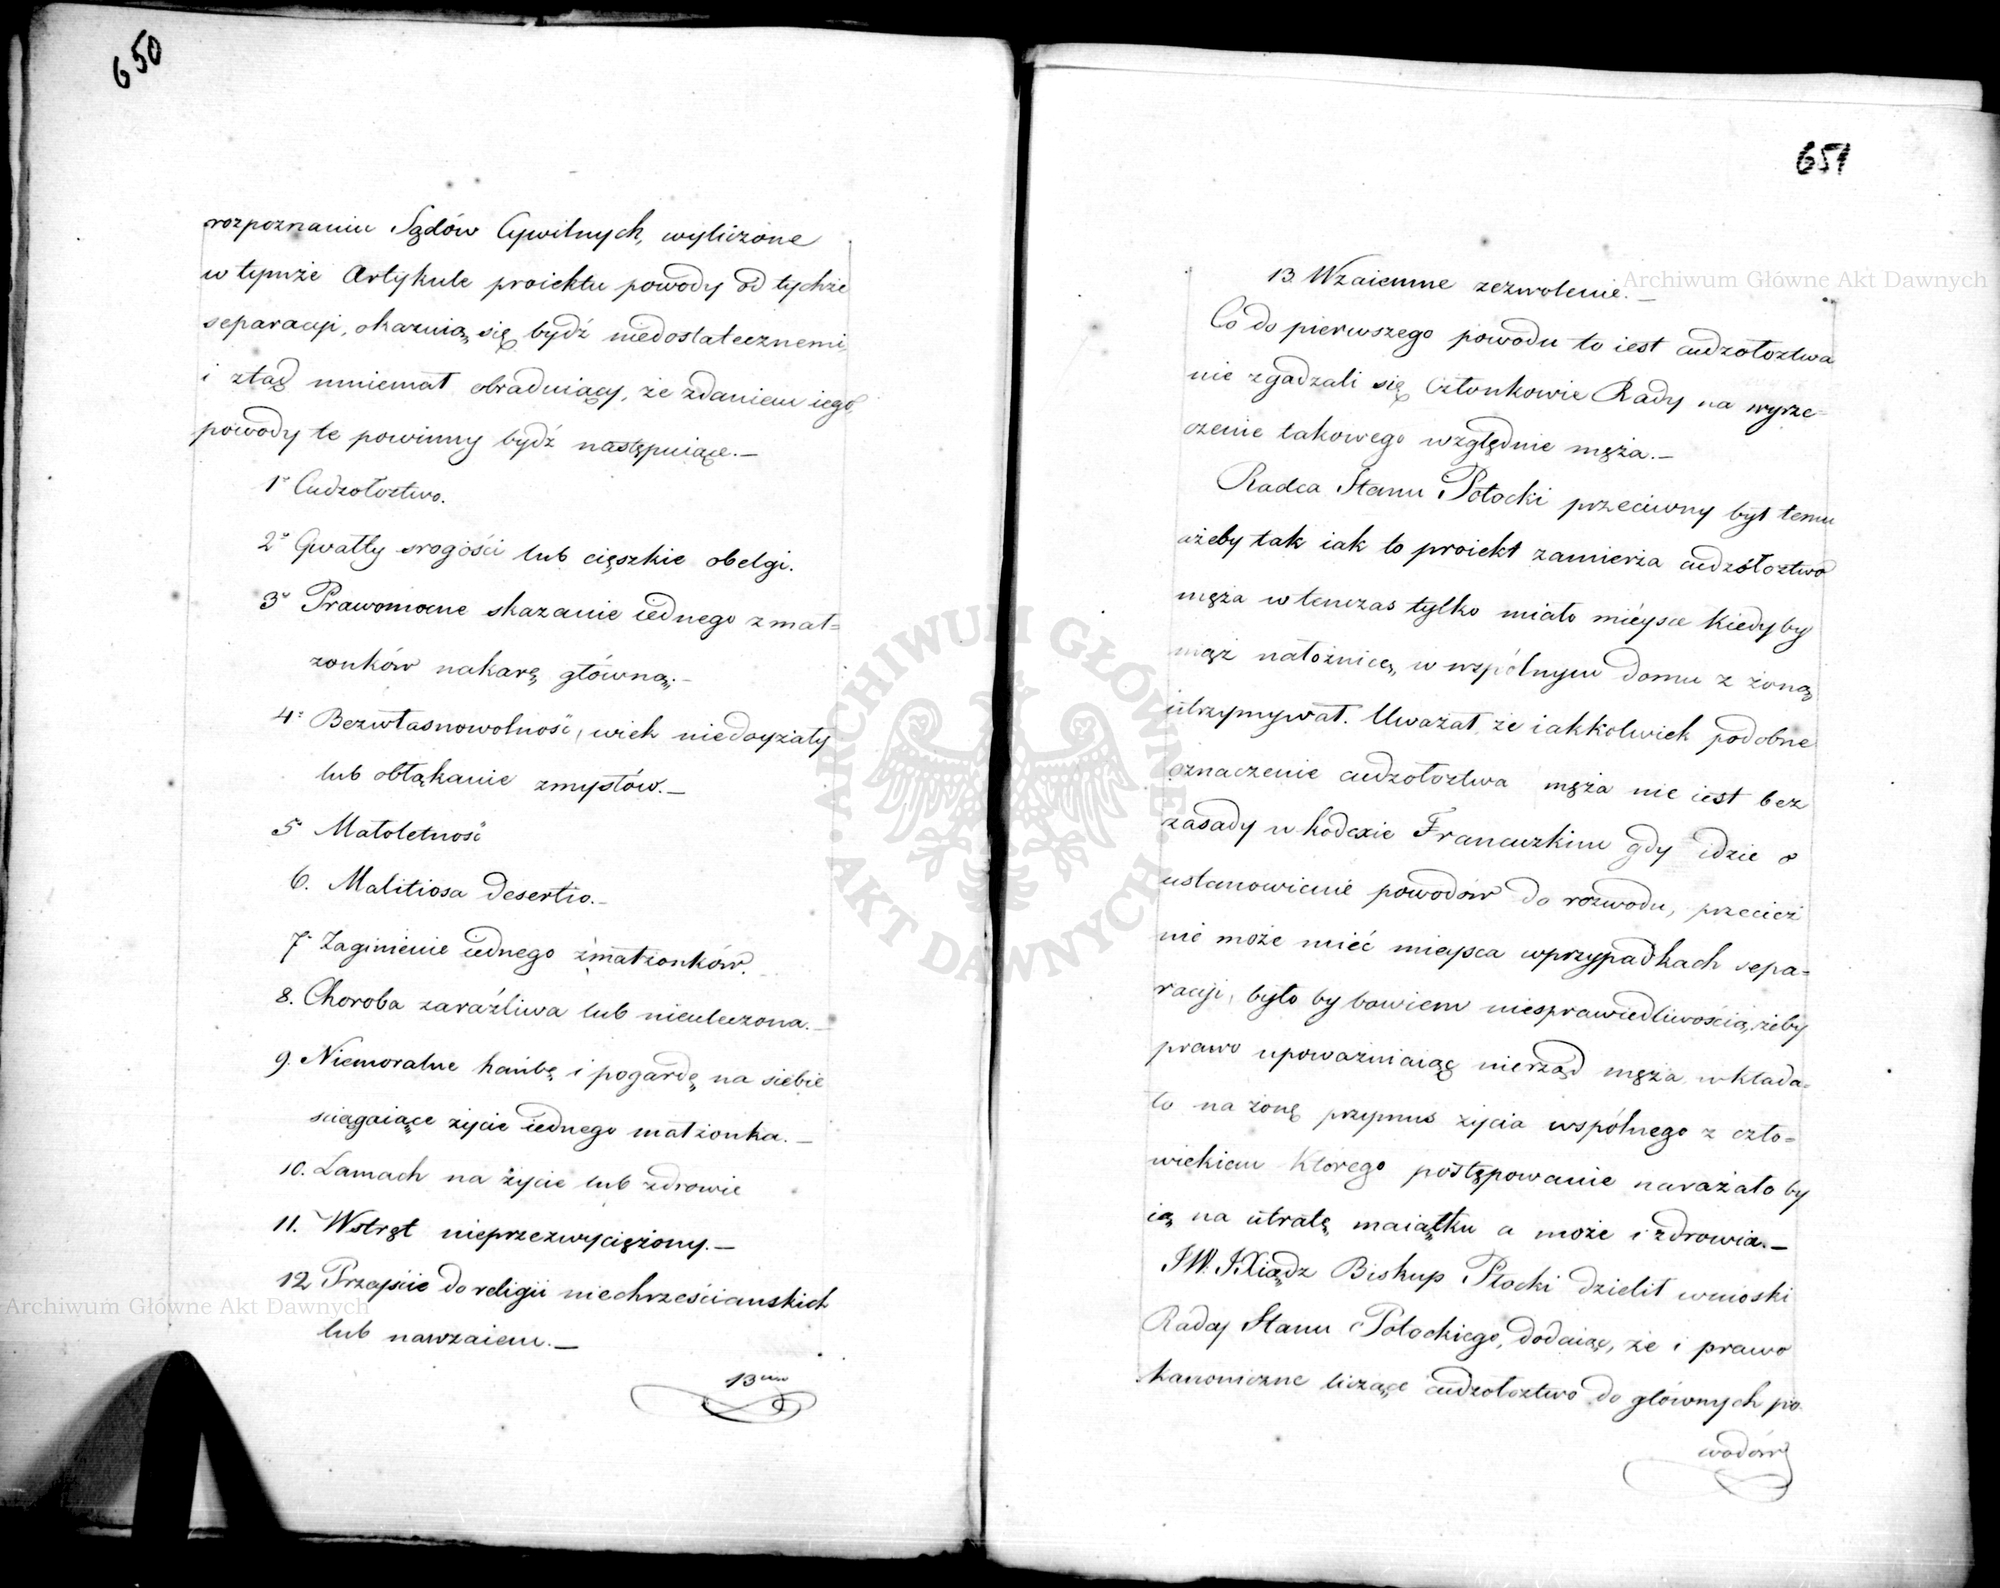 650
rozpoznaniu Sądów Cywilnych, wyliczone
w tymże Artykule proiektu powody od tychże
separacyi, okazuią się bydź niedostatecznemi,
i ztąd mniemał obraduiący, że zdaniem iego
powody te powinny bydź następuiące.—
1º Cudzołoztwo.
2º Gwałty srogości lub cięszkie obelgi.
3º Prawomocne skazanie iednego z mał=
żonków na karę główną.—
4º Bezwłasnowolność, wiek niedoyzały
lub obłąkanie zmysłów.—
5º Małoletność
6. Malitiosa desertio.—
7. Zaginienie iednego z małżonków.
8. Choroba zaraźliwa lub nieuleczona.—
9. Niemoralne hańbę i pogardę na siebie
sciągaiące życie iednego małżonka.—
10. Zamach na życie lub zdrowie
11. Wstręt nieprzezwyciężony.—
12 Przejście do religii niechrześcianskich
lub nawzaiem.—
13
651
13. Wzaiemne zezwolenie.—
Co do pierwszego powodu to iest cudzołoztwa
nie zgadzali się Członkowie Rady na wyrze=
czenie takowego względnie męża.—
Radca Stanu Potocki przeciwny był temu
ażeby tak iak to proiekt zamierza cudzołoztwo
męża wtenczas tylko miało mieysce kiedyby
mąż nałożnicę w wspólnym domu z żoną
utrzymywał. Uważał, że iakkolwiek podobne
oznaczenie cudzołoztwa męża nie iest bez
zasady w kodexie Francuzkim gdy idzie o
ustanowienie powodów do rozwodu, przecież
nie może mieć mieysca w przypadkach sepa=
racyi, byłoby bowiem niesprawiedliwością, żeby
prawo upoważniaiąc nierząd męża wkłada=
ło na żonę przymus życia wspólnego z czło=
wiekiem którego postępowanie narażałoby
ią na utratę maiątku a może i zdrowia.—
JW. JXiądz Biskup Płocki dzielił wnioski
Radcy Stanu Potockiego, dodaiąc, że i prawo
kanoniczne liczące cudzołoztwo do głównych po=
wodów
Archiwum Główne Akt Dawnych
Archiwum Główne Akt Dawnych
ARCHIWUM GŁÓWNE AKT DAWNYCH